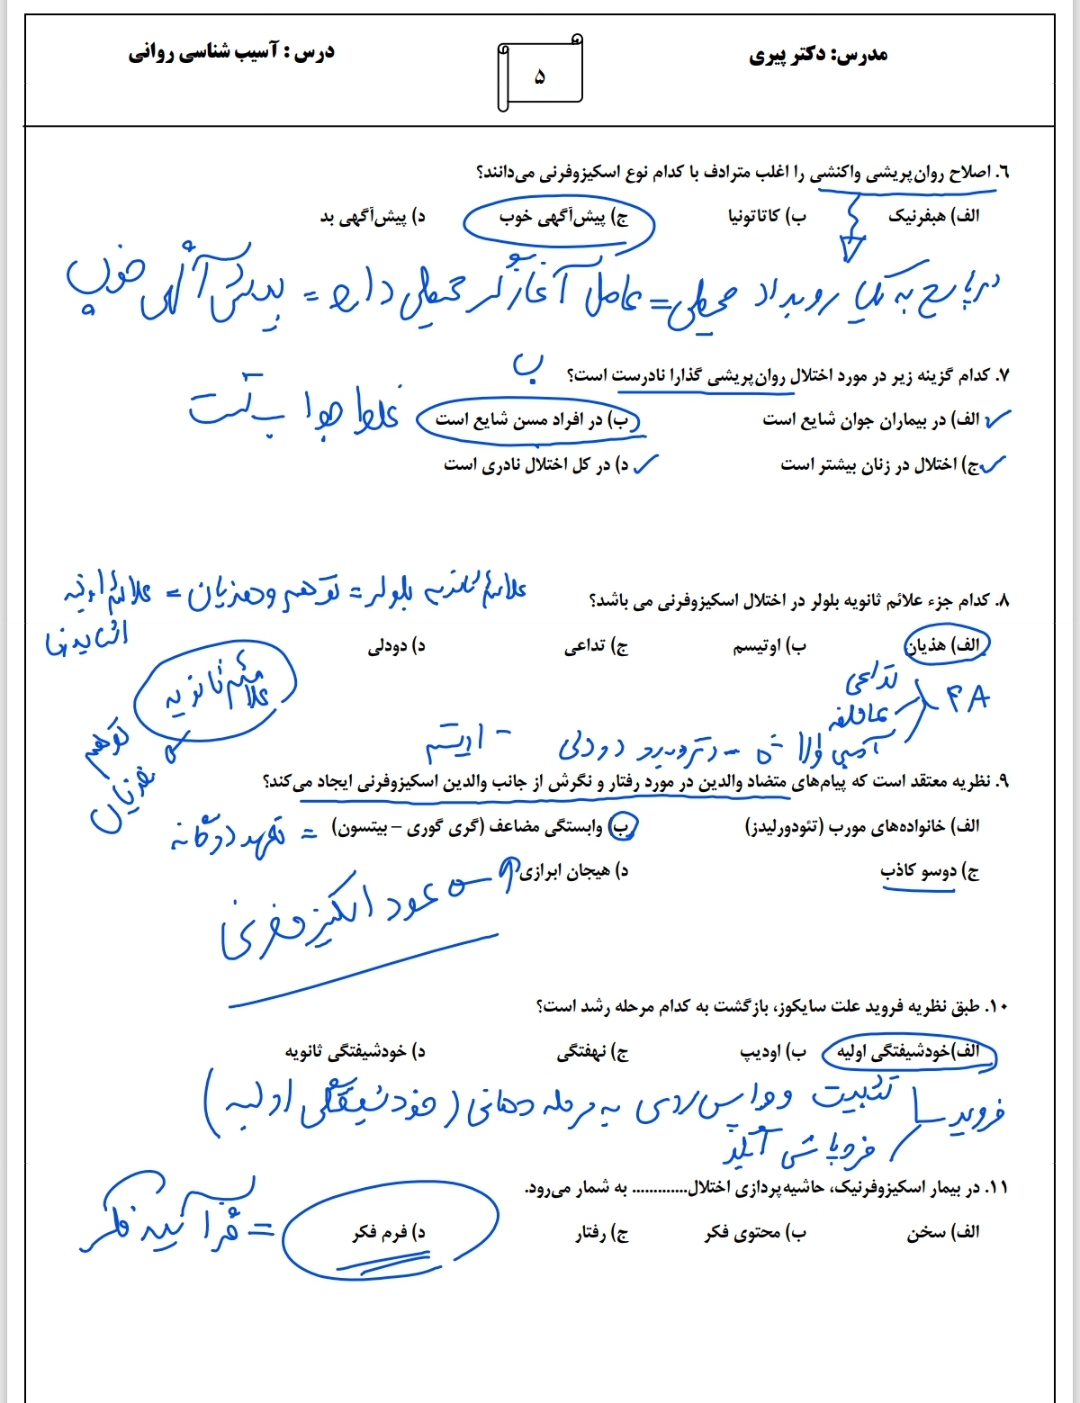 مدرس: دکتر پیری
۵
درس : آسیب شناسی روانی
۶. اصلاح روان‌پریشی واکنشی را اغلب مترادف با کدام نوع اسکیزوفرنی می‌دانند؟
الف) هبفرنیک ب) کاتاتونیا ج) پیش‌آگهی خوب د) پیش‌آگهی بد
در پاسخ به یک رویداد محیطی = عامل آغازگر محیطی دارد = پیش آگهی خوب
۷. کدام گزینه زیر در مورد اختلال روان‌پریشی گذارا نادرست است؟ ب
الف) در بیماران جوان شایع است ب) در افراد مسن شایع است
ج) اختلال در زنان بیشتر است د) در کل اختلال نادری است
علائم ثانویه بلولر = توهم و هذیان = علائم اولیه
۸. کدام جزء علائم ثانویه بلولر در اختلال اسکیزوفرنی می باشد؟
الف) هذیان ب) اوتیسم ج) تداعی د) دودلی
علائم ثانویه
توهم
هذیان
۴A
تداعی
عاطفه
دودلی - اوتیسم
۹. نظریه معتقد است که پیام‌های متضاد والدین در مورد رفتار و نگرش از جانب والدین اسکیزوفرنی ایجاد می‌کند؟
الف) خانواده‌های مورب (تئودورلیدز) ب) وابستگی مضاعف (گری گوری – بیتسون) = تعهد دوگانه
ج) دوسو کاذب د) هیجان ابرازی
عود اسکیزوفرنی
۱۰. طبق نظریه فروید علت سایکوز، بازگشت به کدام مرحله رشد است؟
الف)خودشیفتگی اولیه ب) اودیپ ج) نهفتگی د) خودشیفتگی ثانویه
فروید تثبیت و واپس روی به مرحله دهانی (خودشیفتگی اولیه)
فروپاشی
۱۱. در بیمار اسکیزوفرنیک، حاشیه‌پردازی اختلال............. به شمار می‌رود.
الف) سخن ب) محتوی فکر ج) رفتار د) فرم فکر = فرآیند فکر